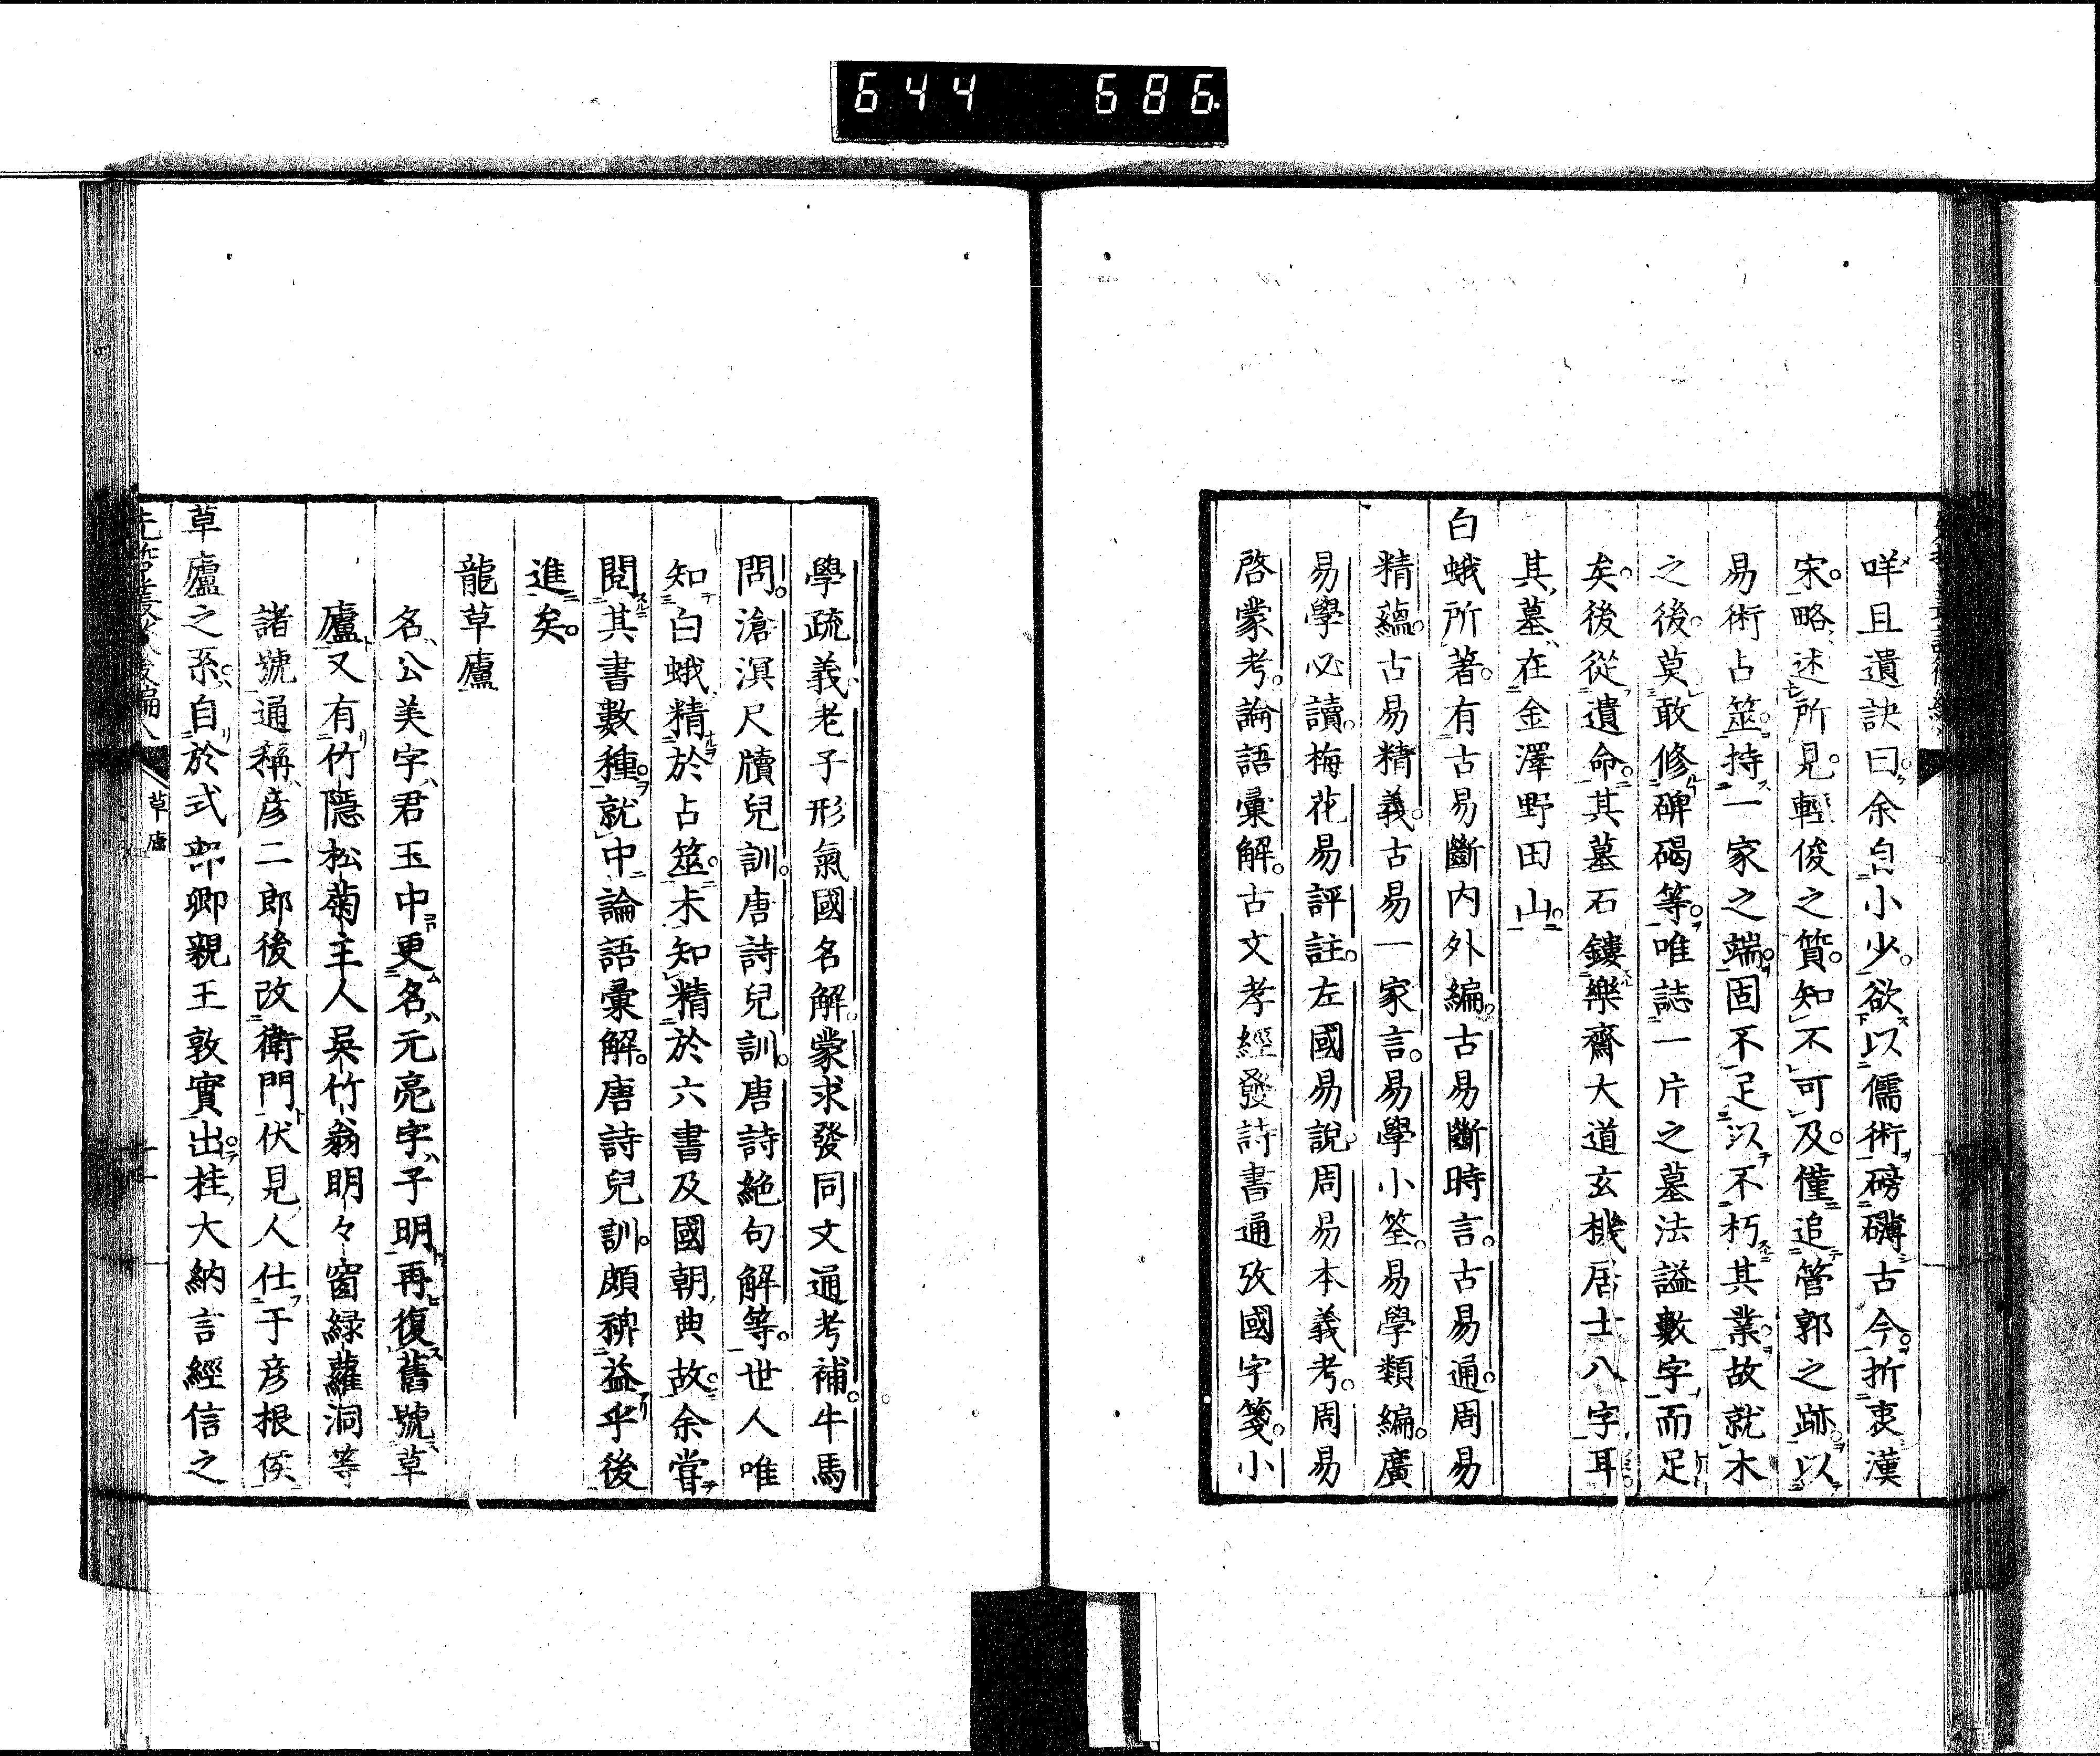 644 686
咩且遺訣曰余自小少欲以儒術磅礴古今折衷漢
宋略述所見輕俊之質知不可及僅追管郭之跡以
易術占筮持一家之端固不足以不朽其業故就木
之後莫敢修碑碣等唯誌一片之墓法謚數字而足
矣後從遺命其墓石鏤樂齋大道玄機居士八字耳
其墓在金澤野田山
白蛾所著有古易斷内外編古易斷時言古易通周易
精蘊古易精義古易一家言易學小筌易學類編廣
易學必讀梅花易評註左國易說周易本義考周易
啓蒙考論語彙解古文孝經發詩書通攷國字箋小
學疏義老子形氣國名解蒙求發同文通考補牛馬
問滄溟尺牘兒訓唐詩兒訓唐詩絶句解等世人唯
知白蛾精於占筮未知精於六書及國朝典故余嘗
閱其書數種就中論語彙解唐詩兒訓頗裨益乎後
進矣
龍草廬
名公美字君玉中更名元亮字子明再復舊號草
廬又有竹隱松菊主人吳竹翁明々窗緑蘿洞等
諸號通稱彦二郎後改衛門伏見人仕于彦根侯
草廬之系自於式部卿親王敦實出桂大納言經信之
草廬